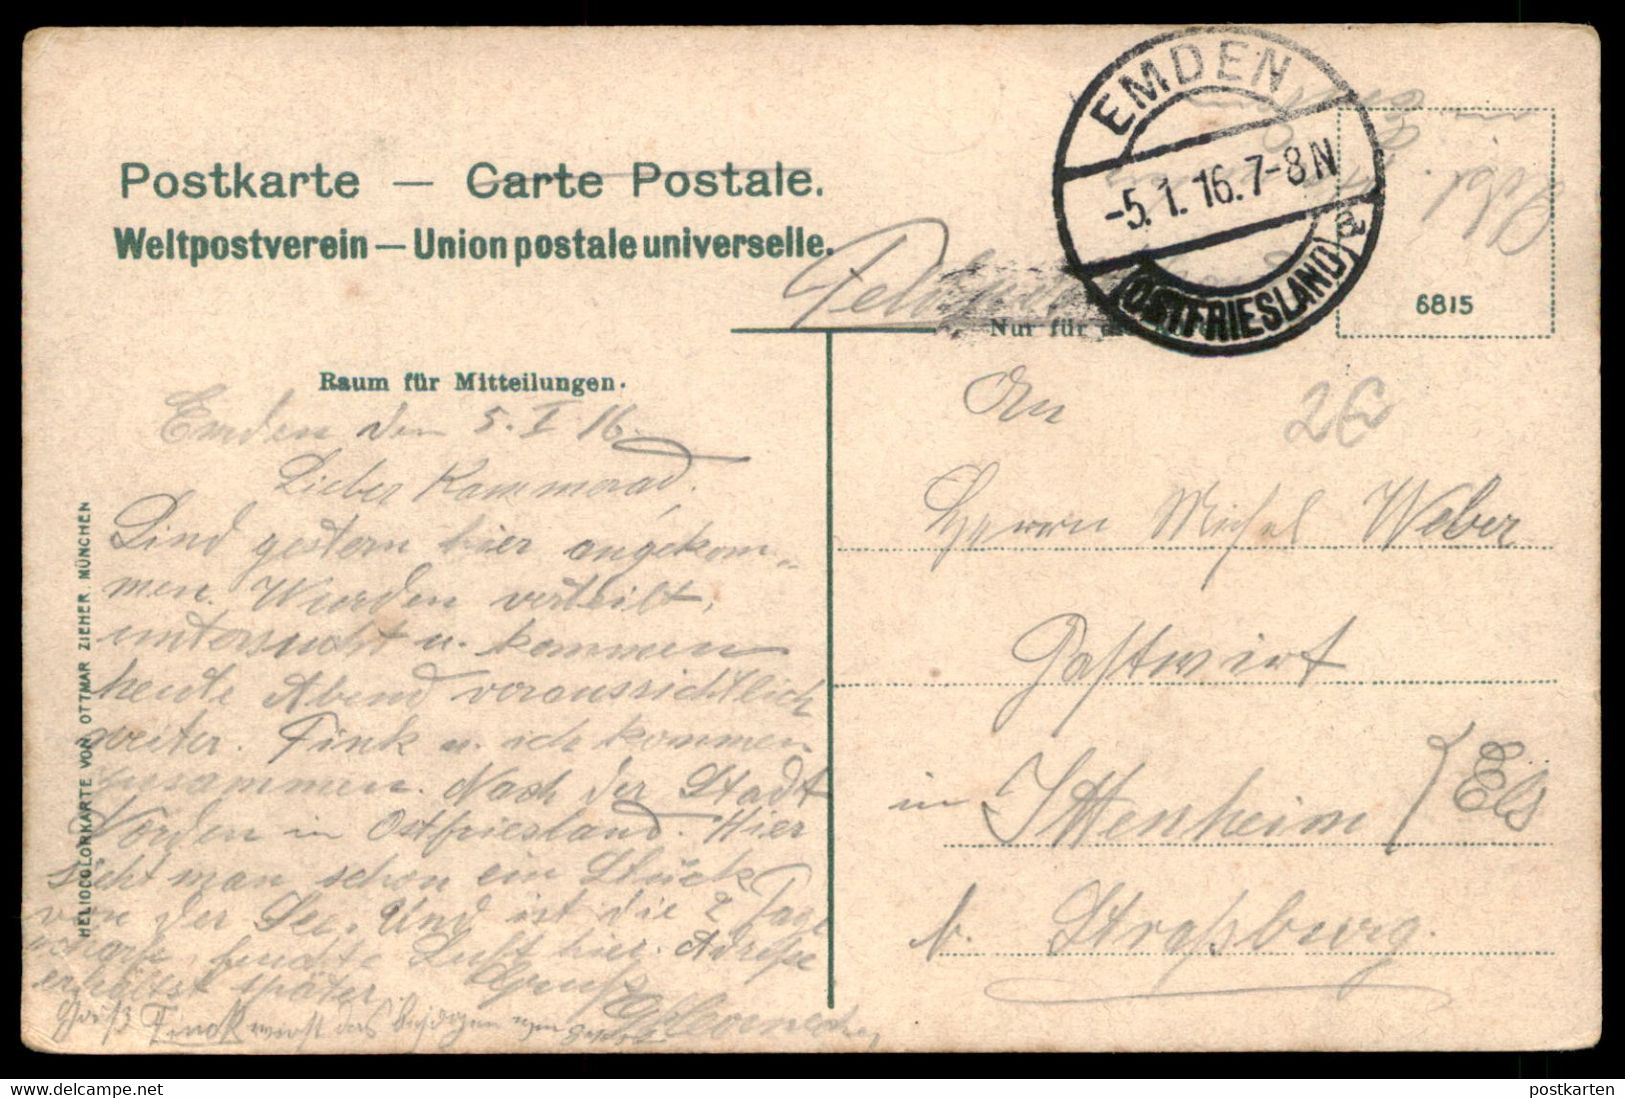 Postkarte — Carte Postale.
Weltpostverein — Union postale universelle.
EMDEN
-5.1.16.7-8N
(OSTFRIESLAND)
a
6815
Nur für
Raum für Mitteilungen.
Emden den 5. I 16.
Lieber Kammerad,
Sind gestern hier angekom-
men. Wurden verteilt,
untersucht u. kommen
heute Abend voraussichtlich
weiter. Fink u. ich kommen
zusammen. Nach der Stadt
Norden in Ostfriesland. Hier
sieht man schon ein Stück
von der See. Und ist die 2 Tage
scharfe, feuchte Luft hier. Adresse
erhältst später. Gruß
Gruß Fink
HELIOCOLORKARTE VON OTTMAR ZIEHER, MÜNCHEN
An
2€
Herrn Michel Weber
Gastwirt
in Ittenheim / Els
b. Straßburg.
postkarten
delcampe.net